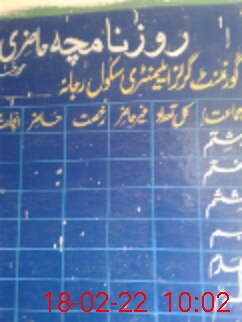 روزنامچہ حاضری
گورنمنٹ گرلز ایلیمنٹری سکول رجانہ
جماعت کل تعداد غیر حاضر رخصت حاضر
ہشتم
ہفتم
ششم
پنجم
چہارم
18-02-22 10:02